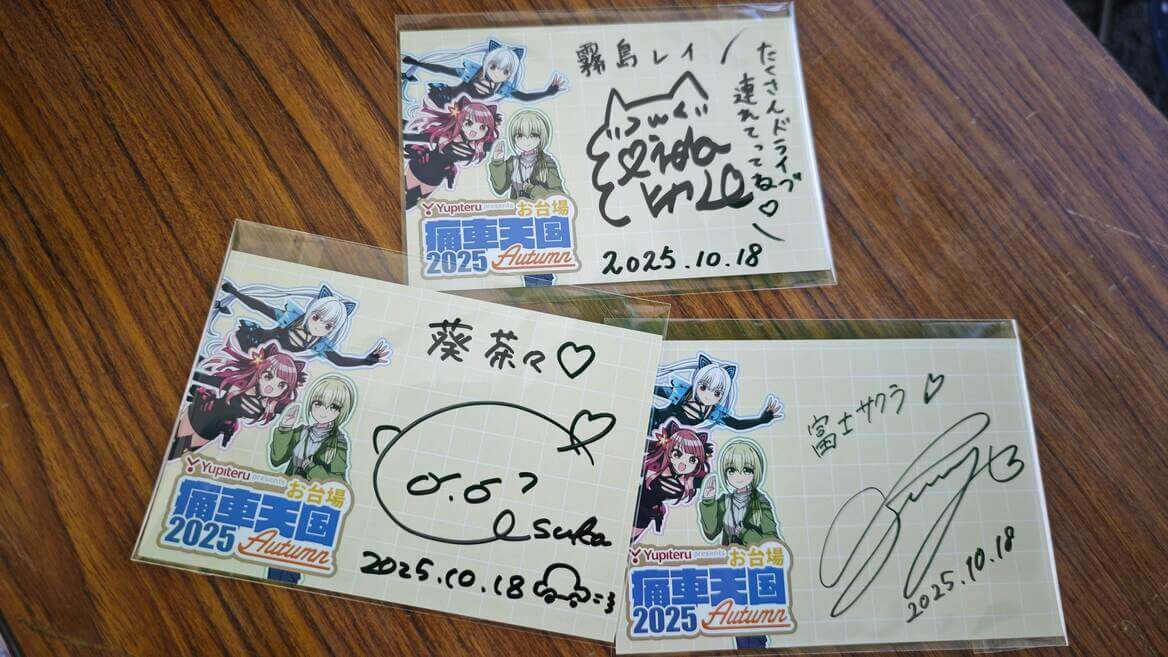 霧島レイ
たくさんドライブ
連れてってね♡
2025.10.18
Yupiteru presents お台場
痛車天国
2025 Autumn
葵茶々♡
suka
2025.10.18
Yupiteru presents お台場
痛車天国
2025 Autumn
富士サクラ♡
2025.10.18
Yupiteru presents お台場
痛車天国
2025 Autumn